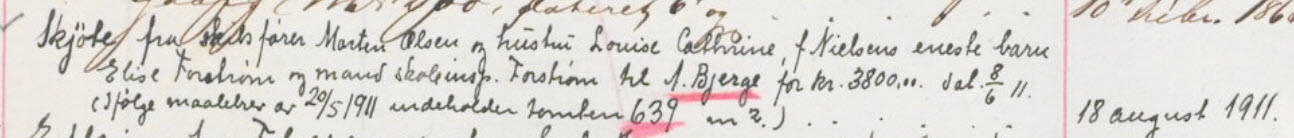 dateret 6 og 10 Febr. 186
Skjöte fra Skibsfører Morten Olsen og hustru Louise Cathrine, f Nielsens eneste barn
Elise Forstrøm og mand skoleinsp. Forstrøm til A. Bjerge for kr. 3800,00. dat. 8/6 11.
(Ifølge maalebrev av 20/5 1911 indeholder tomten 639 m2.) 18 august 1911.